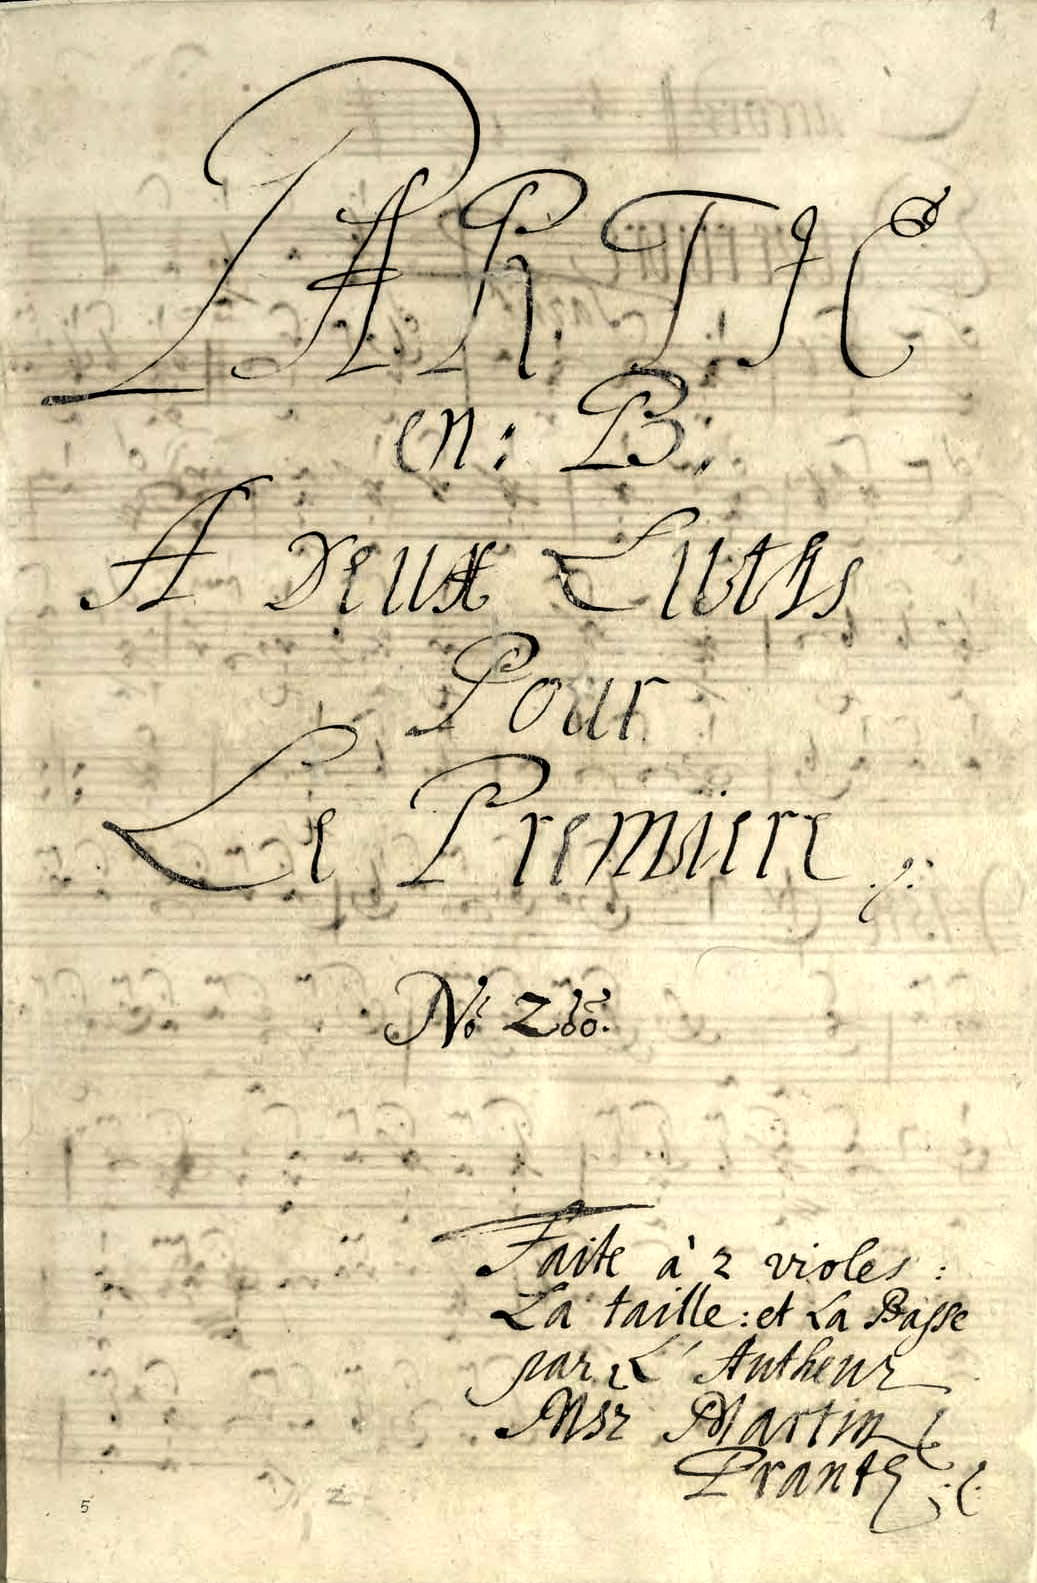 1
PARTIE
en: B:
A Deux Luths
Pour
Le Premiere
No:
Faite à 2 violes:
La taille: et La Basse
par L'Autheur
Msr Martin
Prantz
5
2